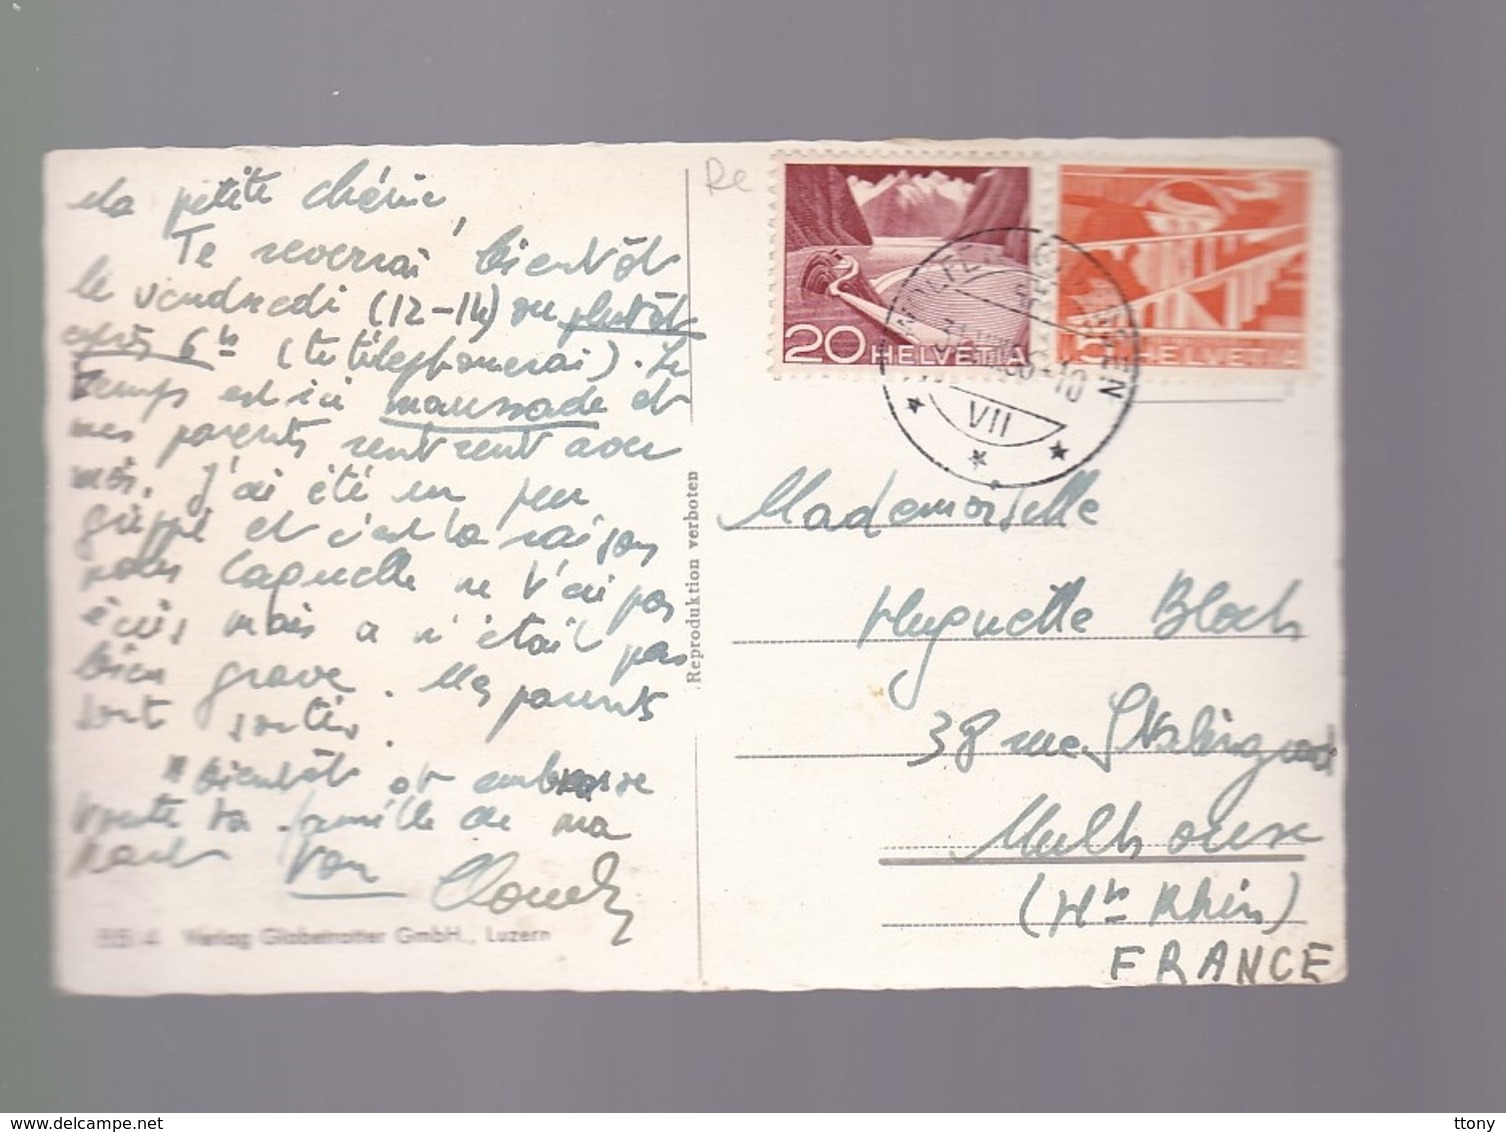 Ma petite chérie,
Te reverrai bientôt
le vendredi (12-14) ou plutôt
après 6h (te téléphonerai). Le
temps est ici maussade et
mes parents rentrent avec
moi. J'ai été un peu
grippé et c'est la raison
pour laquelle ne t'ai pas
écris mais ce n'était pas
bien grave. Mes parents
sont sortis.
A bientôt et embrasse
toute ta famille de ma
part Ton
BB 4 Verlag Globetrotter GmbH., Luzern
Reproduktion verboten
Re
20 HELVETIA
5 HELVETIA
VII
Mademoiselle
Huguette Bloch
38 rue Stalingrad
Mulhouse
(Ht Rhin)
FRANCE
ttony